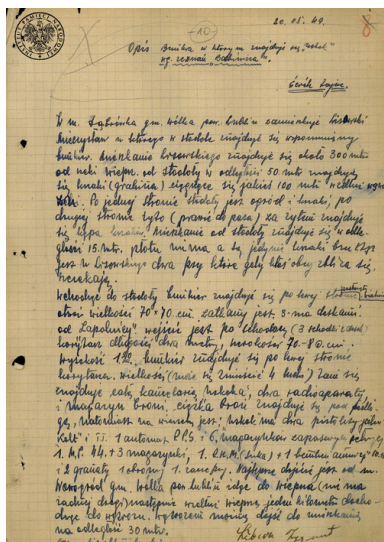 20.05.49.
-10-
Opis Bunkra w którym znajduje się "Uskok"
wg. zeznań
W m. Dąbrówka gm. Wólka pow. Lublin zamieszkuje Lisowski
Mieczysław u którego w stodole znajduje się wspomniany
bunkier. Mieszkanie Lisowskiego znajduje się około 300 mtr.
od rzeki Wieprz. od stodoły w odległości 50 mtr. znajdują
się krzaki (grabina) ciągnące się jakieś 100 mtr. wzdłuż
Po jednej stronie stodoły jest ogród i krzaki, po
drugiej stronie żyto (prawie do pasa) za żytem znajduje
się kępa krzaków, mieszkanie od stodoły znajduje się w odle-
głości 15 mtr. płotu nie ma a są jedynie krzaki bzu
Jest u Lisowskiego dwa psy które gdy ktoś obcy zbliża się,
szczekają.
Wchodząc do stodoły bunkier znajduje się po lewej stronie
otwór wielkości 70 x 70 cm. zatkany jest 3-ma deskami.
od "zapolnicy" wejście jest po schodach (3 schodki z desek)
korytarz długości dwa metry, wysokości 70-80 cm.
Wysokość bunkier znajduje się po lewej stronie
korytarza. wielkości (może się zmieścić 4 ludzi) tam się
znajduje cała kancelaria "Uskoka", dwa radioaparaty
i magazyn broni, ciężka broń znajduje się pod podło-
gą, natomiast na wierzchu jest: "Uskok" ma dwa pistolety jeden
"Kolt" i TT. 1 automat P.P.S i 6 magazynków zapasowych
1. M.P. 44 + 3 magazynki, 1. R.K.M.
i 2 granaty 1 obronny 1 zaczepny. Następne dojście jest od m.
gm. Wólka pow. Lublin idąc do Wieprza (nie ma
żadnej drogi) następnie wzdłuż Wieprza jeden kilometr docho-
dzi się do wąwozu. Wąwozem można dojść do mieszkania
na odległość 30 mtr.